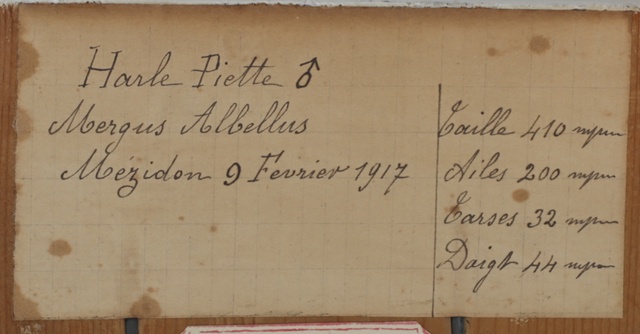 Harle Piette ♂
Mergus Albellus
Mezidon 9 Fevrier 1917
Taille 410 m/m
Ailes 200 m/m
Tarses 32 m/m
Doigt 44 m/m